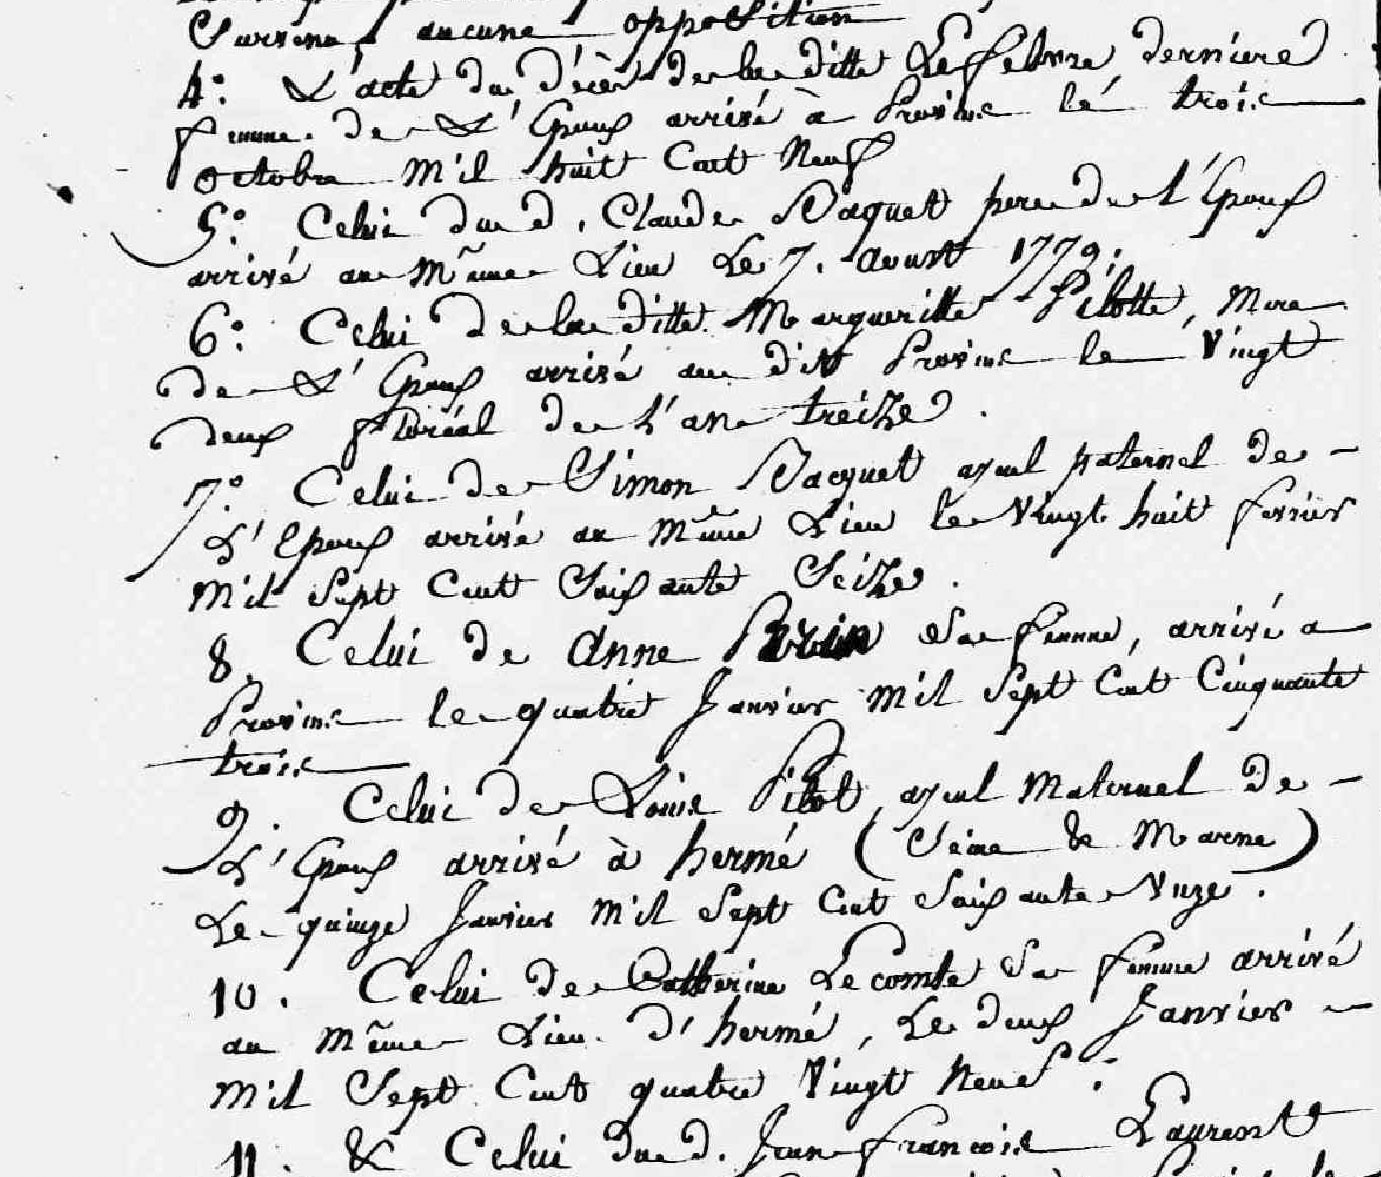 Survenu, aucune opposition
4.° L'acte du décès de la ditte Lefebvre derniere
femme de L'Epoux arrivé à Provins le trois
octobre mil huit Cent Neuf
5.° Celui du d. Claude Vaquet pere de l'Epoux
arrivé au même Lieu Le 7. aoust 1779.
6.° Celui de la ditte Margueritte Pilotte, Mere
de L'Epoux arrivé au dit Provins le Vingt
deux floréal de l'an treize.
7.° Celui de Simon Vacquet ayeul paternel de -
L'Epoux arrivé au même Lieu le Vingt huit fevrier
Mil Sept Cent Soixante Seize.
8. Celui de Anne Sa femme, arrivé a
Provins le quatre Janvier Mil Sept Cent Cinquante
trois
9. Celui de Louis Pilot, ayeul Maternel de -
L'Epoux arrivé à hermé (Seine & Marne)
Le quinze Janvier Mil Sept Cent Soixante Unze.
10. Celui de Catherine Lecomte Sa femme arrivé
au même Lieu d'hermé, Le deux Janvier -
Mil Sept Cent quatre Vingt Neuf.
11. & Celui du d. Jean françois Laurent